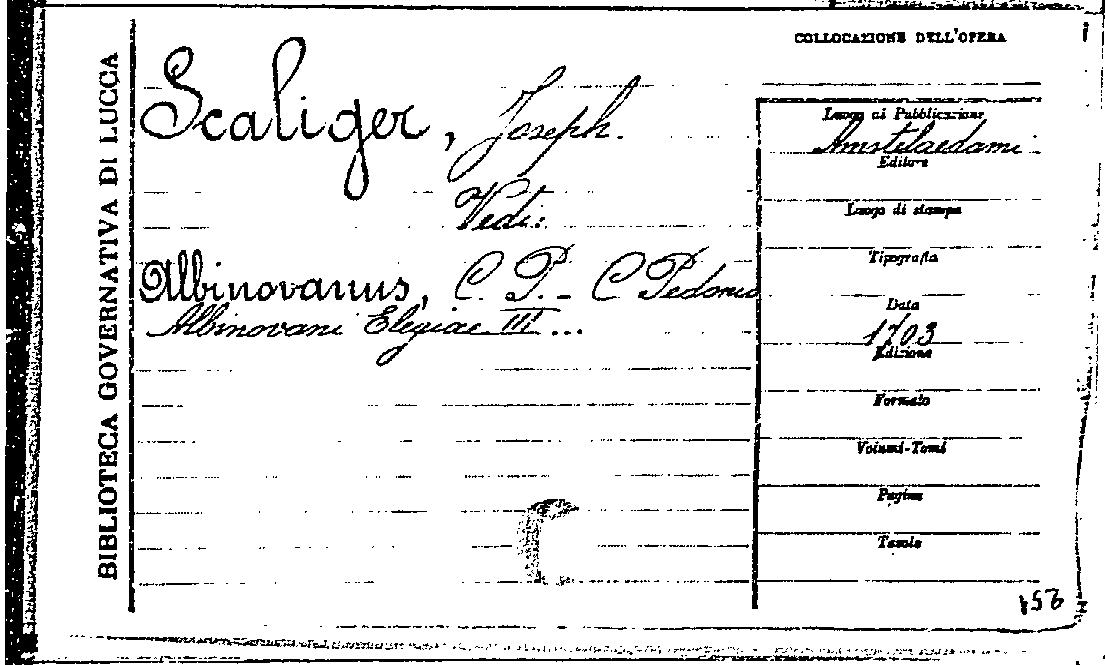 BIBLIOTECA GOVERNATIVA DI LUCCA
Scaliger, Joseph.
Vedi:
Albinovanus, C. P. - C Pedonis
Albinovani Elegiae III...
COLLOCAZIONE DELL'OPERA
Luogo di Pubblicazione
Amstelaedami
Editore
Luogo di stampa
Tipografia
Data
1703
Edizione
Formato
Volumi-Tomi
Pagine
Tavole